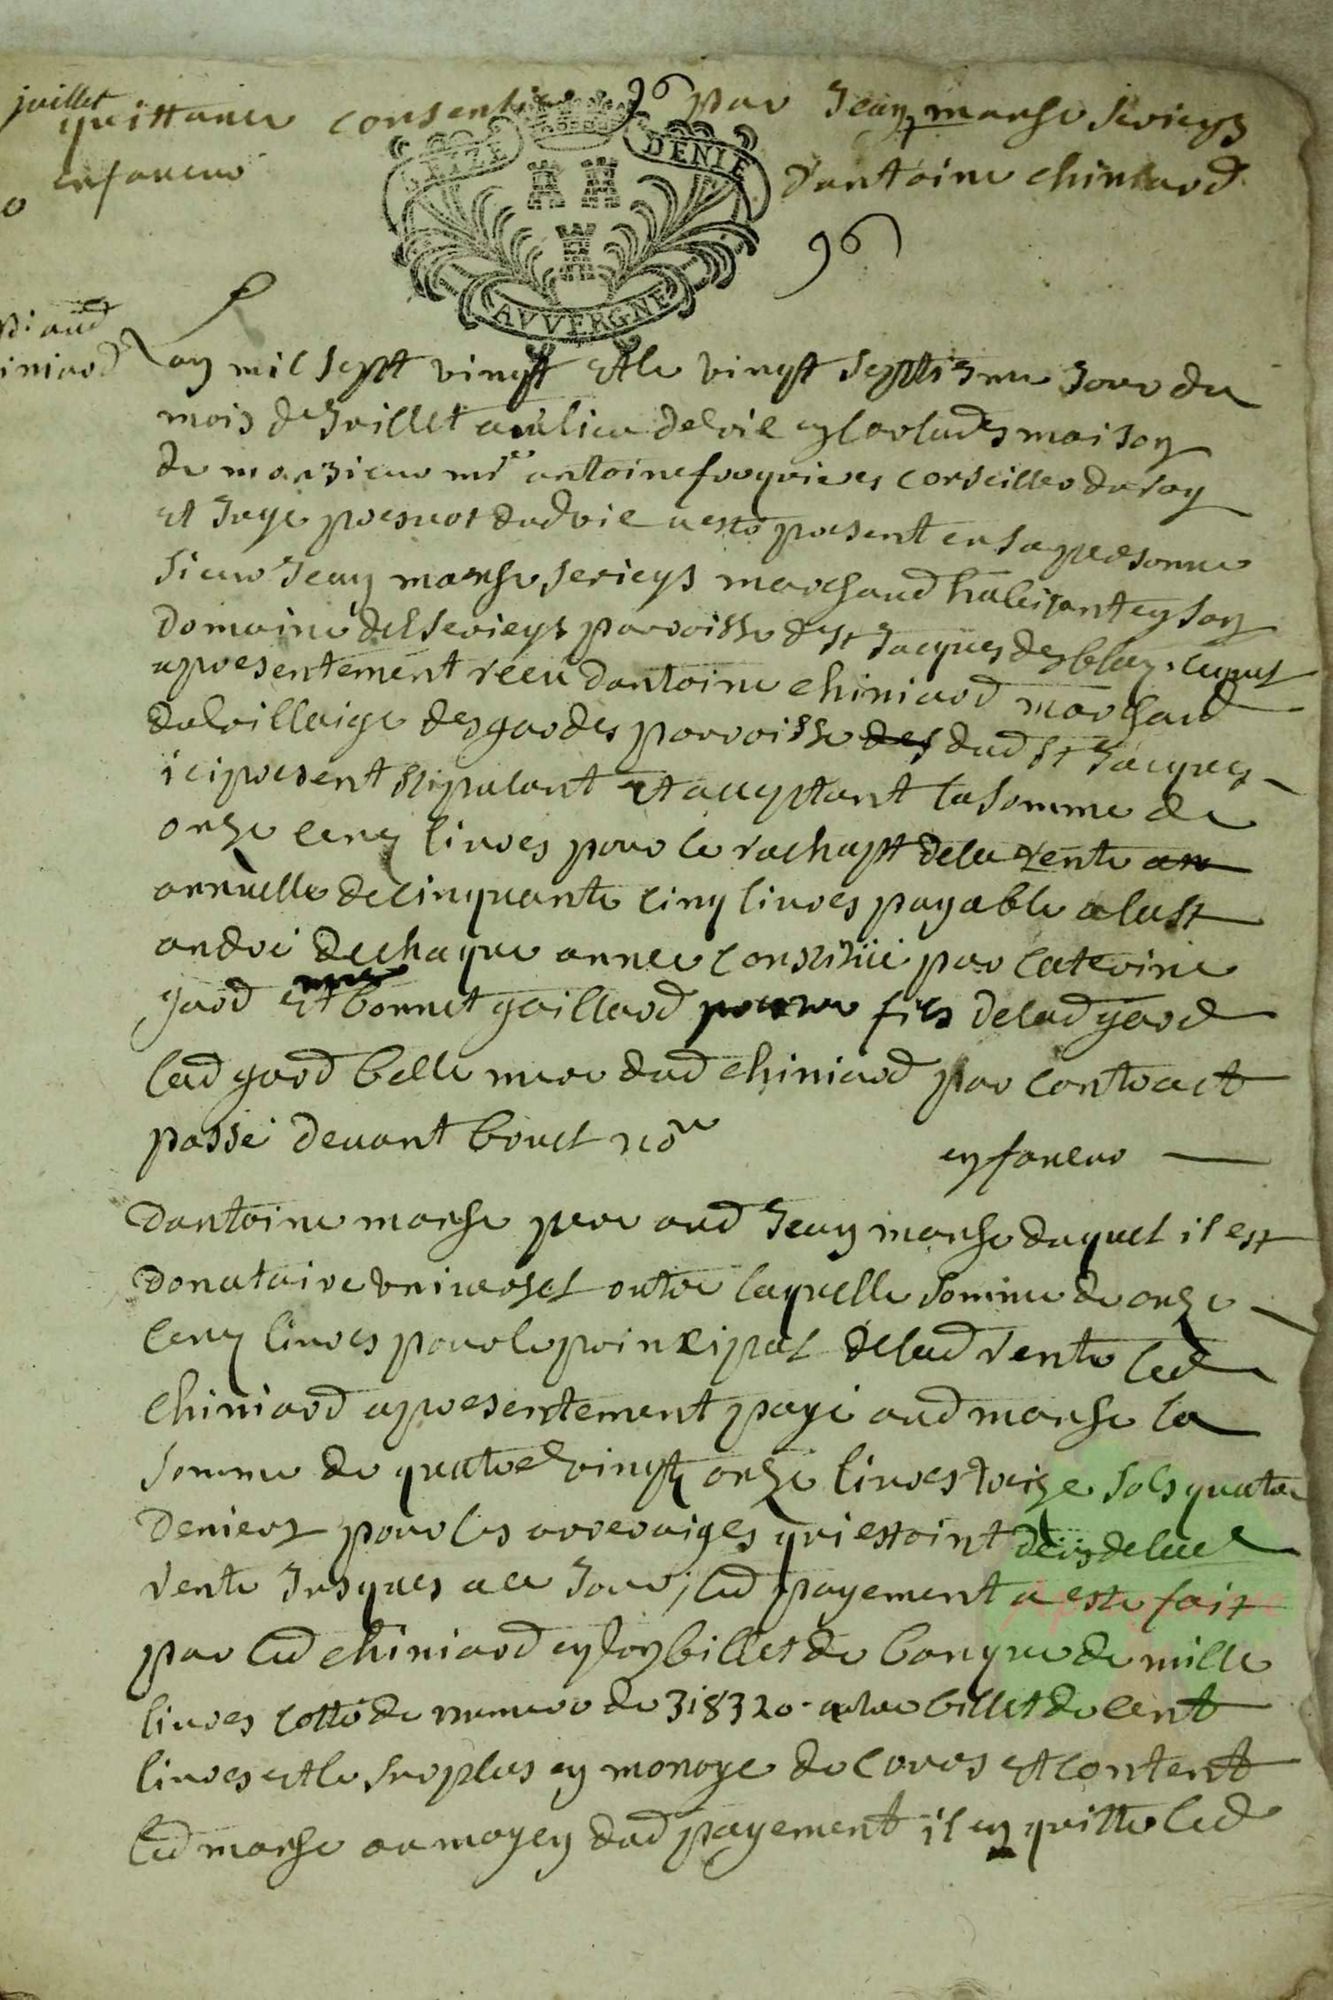 juillet
quittance consentie 96 par Jean marse serieys
enfaveur d'antoine chiniard
SEIZE DENIE
AVVERGNE
96
Lan mil sept vingt et le vingt septiesme Jour du
mois de Juillet au lieu de vic en Carlades maison
de monsieur mre antoine conseiller du roy
et Juge prevost dud vic a esté present en sa personne
sieur Jean marse serieys marchand habitant en son
domaine del serieys parroisse de st Jacques des blaz. lequel
a presentement receu dantoine chiniard marchand
du village des gardes parroisse des dud st Jacques
ici present stipulant et acceptant la somme de
onze cens livres pour le rachapt de la rente an
annuelle de cinquante cinq livres payable a la st
andré de chaque annee constitüée par caterine
gard et bonnet gaillard fils de lad gard
lad gard belle mere dud chiniard par contract
passé devant bouet nore en faveur
dantoine marse pere aud Jean marse duquel il est
donataire universel outre laquelle somme de onze
cens livres pour le principal de lad rente led
chiniard a presentement payé aud marse la
somme de quatre vingt onze livres treize sols quatre
deniers pour les arreraiges qui estoint deus de lad
rente Jusques a ce Jour, led payement a este fait
par led chiniard en son billet de banque de mille
livres cotté de numero de 318320 autre billet de cent
livres et le surplus en monoye de cours et content
led marse au moyen dud payement il en quitte led